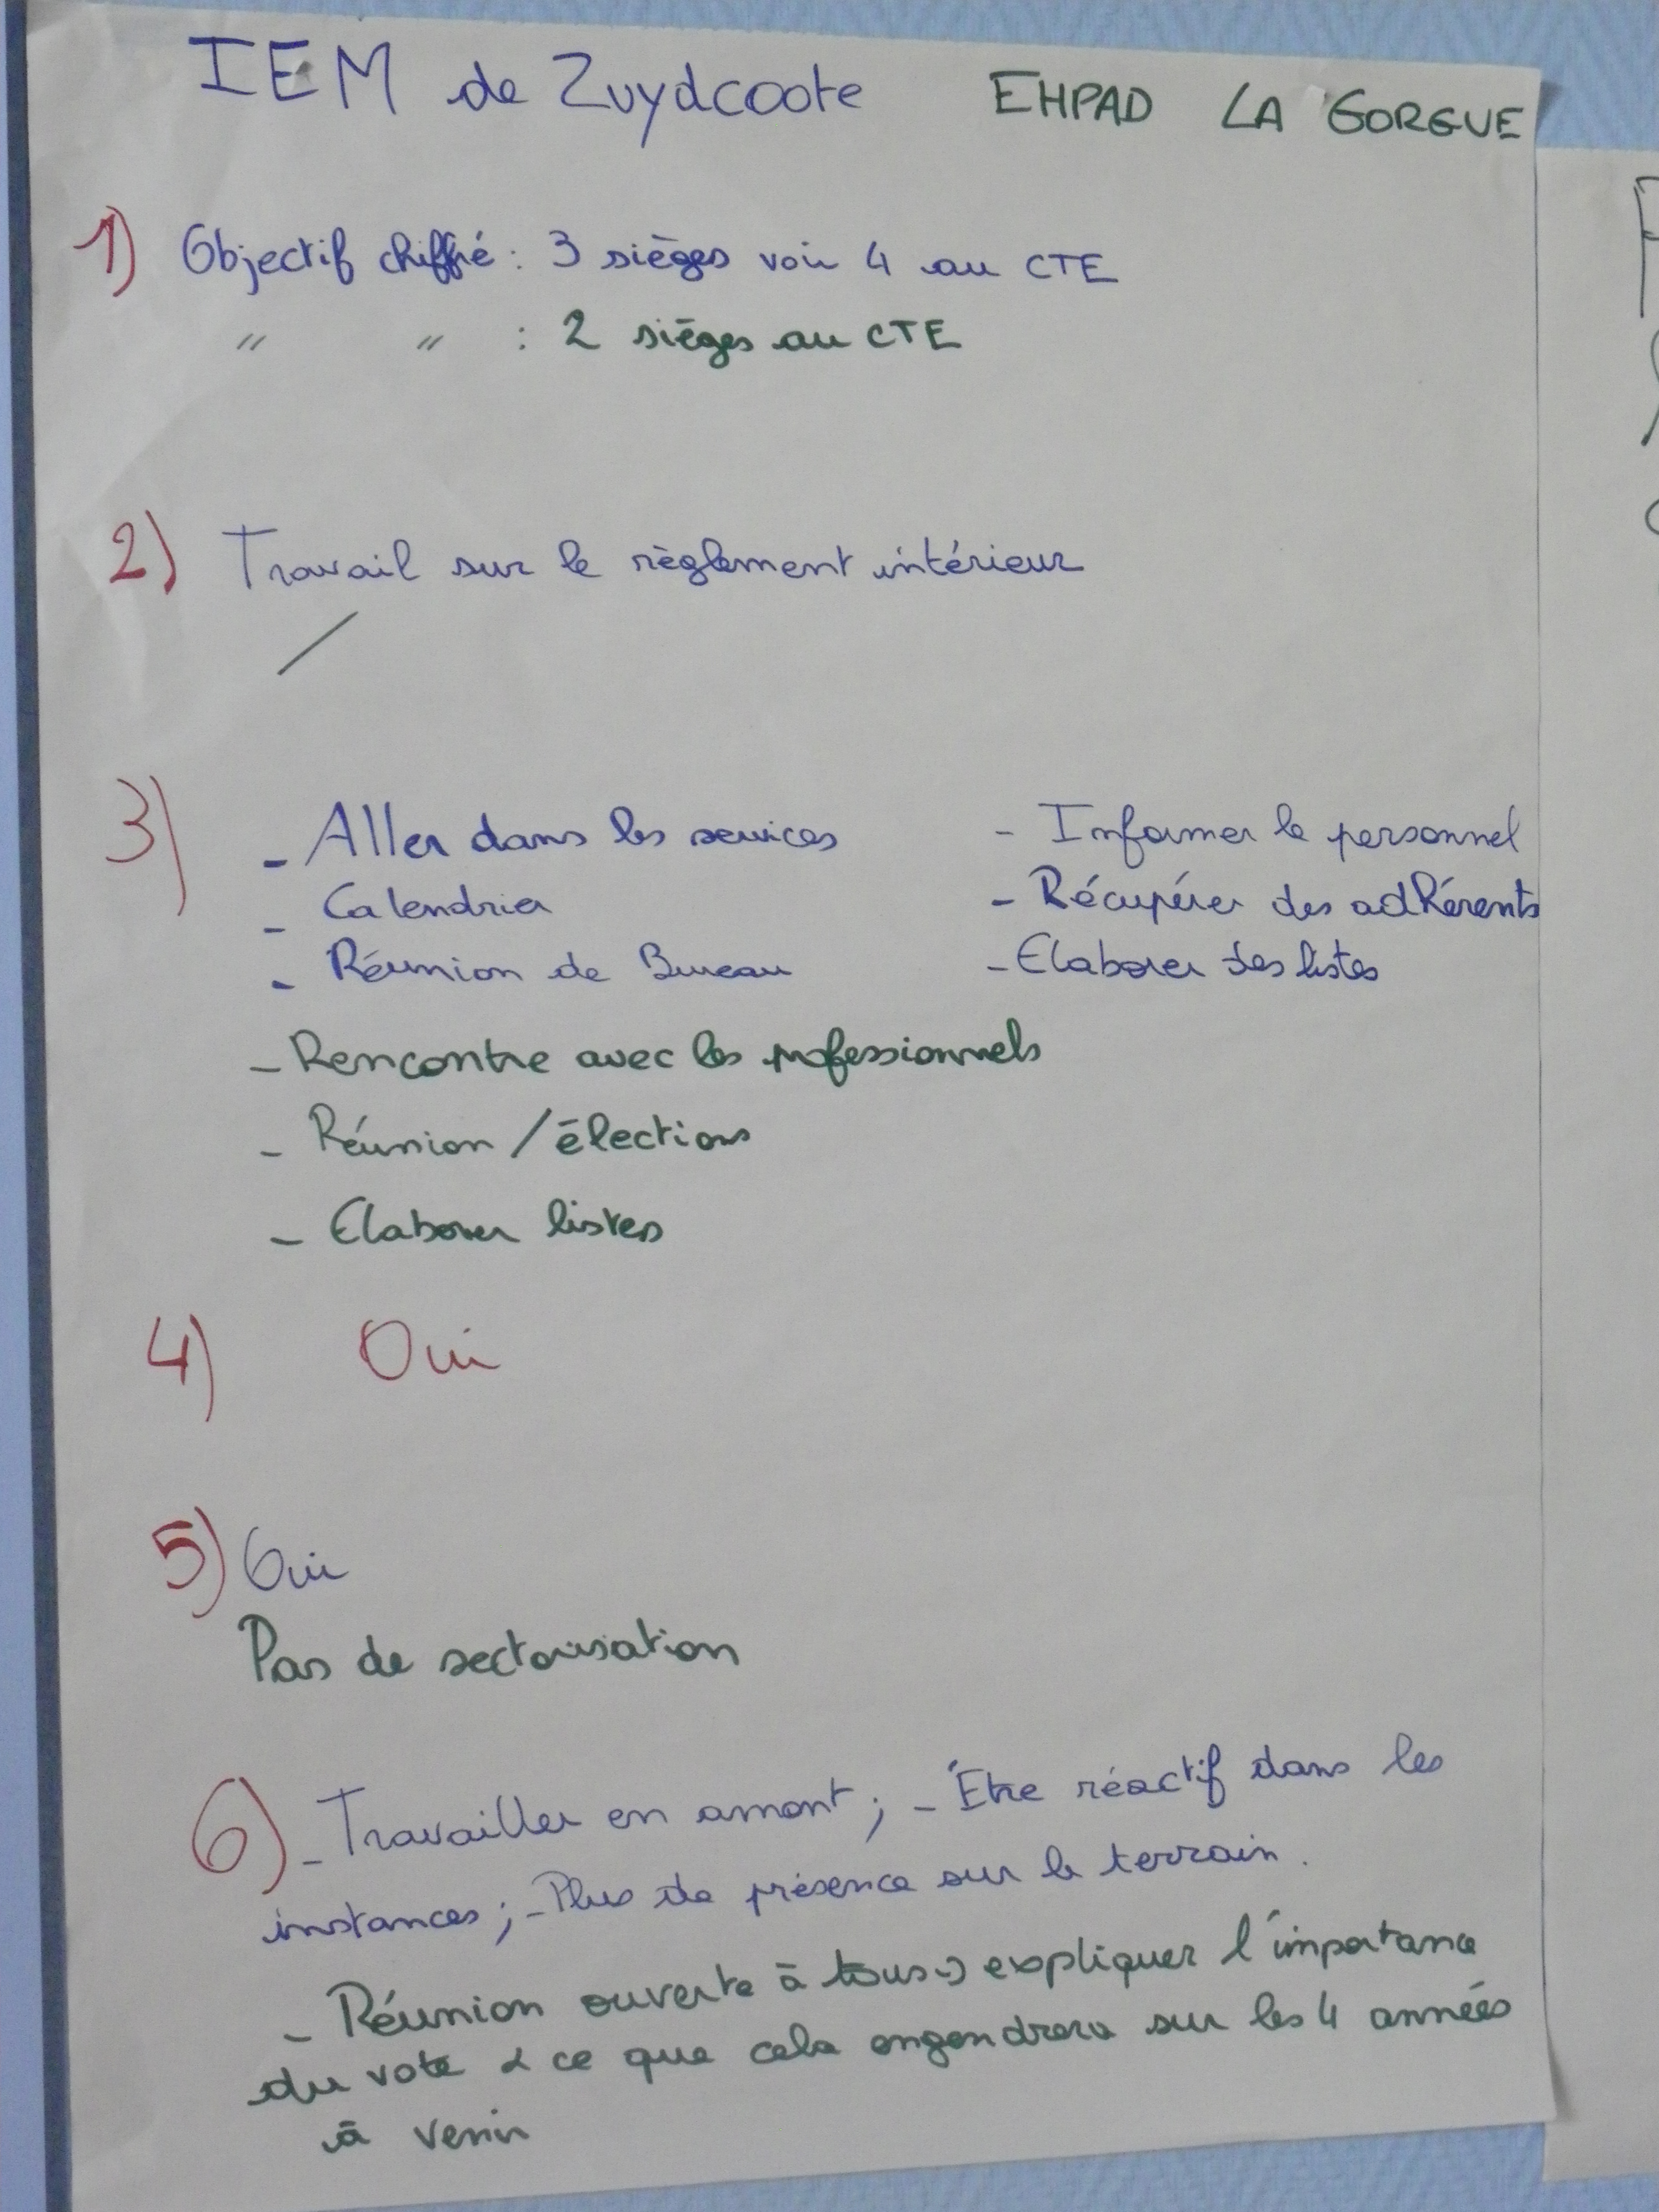 IEM de Zuydcoote EHPAD LA GORGUE
1) Objectif chiffré : 3 sièges voir 4 au CTE
" " : 2 sièges au CTE
2) Travail sur le règlement intérieur
/
3) - Aller dans les services - Informer le personnel
- Calendrier - Récupérer des adhérents
- Réunion de Bureau - Elaborer des listes
- Rencontre avec les professionnels
- Réunion / élections
- Elaborer listes
4) Oui
5) Oui
Pas de sectorisation
6) - Travailler en amont ; - Être réactif dans les
instances ; - Plus de présence sur le terrain.
- Réunion ouverte à tous → expliquer l'importance
du vote & ce que cela engendrera sur les 4 années
à venir